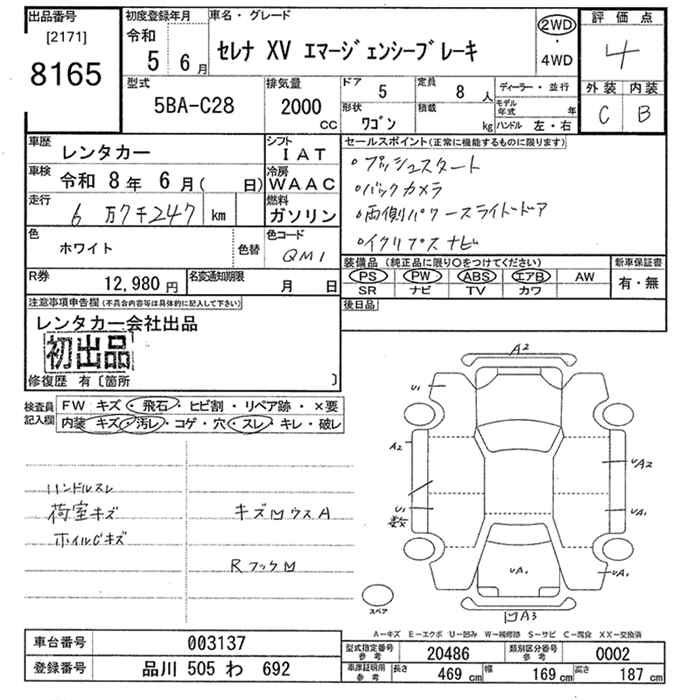 出品番号
[2171]
8165
初度登録年月
令和
5 6月
車名・グレード
セレナ XV エマージェンシーブレーキ
2WD
・
4WD
評価点
4
外装 内装
C B
型式
5BA-C28
排気量
2000
CC
ドア
5
定員
8人
形状
ワゴン
積載
kg
ディーラー・並行
モデル年式 年
ハンドル 左・右
車歴
レンタカー
シフト
IAT
車検
令和 8年 6月( 日)
冷房
WAAC
走行
6万7千247 km
燃料
ガソリン
色
ホワイト
色替
色コード
QM1
R券
12,980円
名変通知期限
月 日
セールスポイント(正常に機能するものに限ります)
・プッシュスタート
・バックカメラ
・両側パワースライドドア
・イクリプスナビ
装備品(純正品に限り○をつけてください)
PS PW ABS エアB AW
SR ナビ TV カワ
新車保証書
有・無
後日品
注意事項申告欄(不具合内容等は具体的に記入して下さい)
レンタカー会社出品
初出品
修復歴 有〔箇所 〕
検査員記入欄
FW キズ・飛石・ヒビ割・リペア跡・×要
内装 キズ・汚レ・コゲ・穴・スレ・キレ・破レ
ハンドルスレ
荷室キズ
ホイルCキズ
キズ凹ウスA
Rフック凹
A2
U1
A2
U1
数
UA2
UA1
UA1
UA1
凹A3
スペア
A-キズ E-エクボ U-凹み W-補修跡 S-サビ C-腐食 XX-交換済
車台番号
003137
登録番号
品川 505 わ 692
型式指定番号
参考
20486
類別区分番号
参考
0002
車庫証明用
参考
長さ
469 cm
幅
169 cm
高さ
187 cm